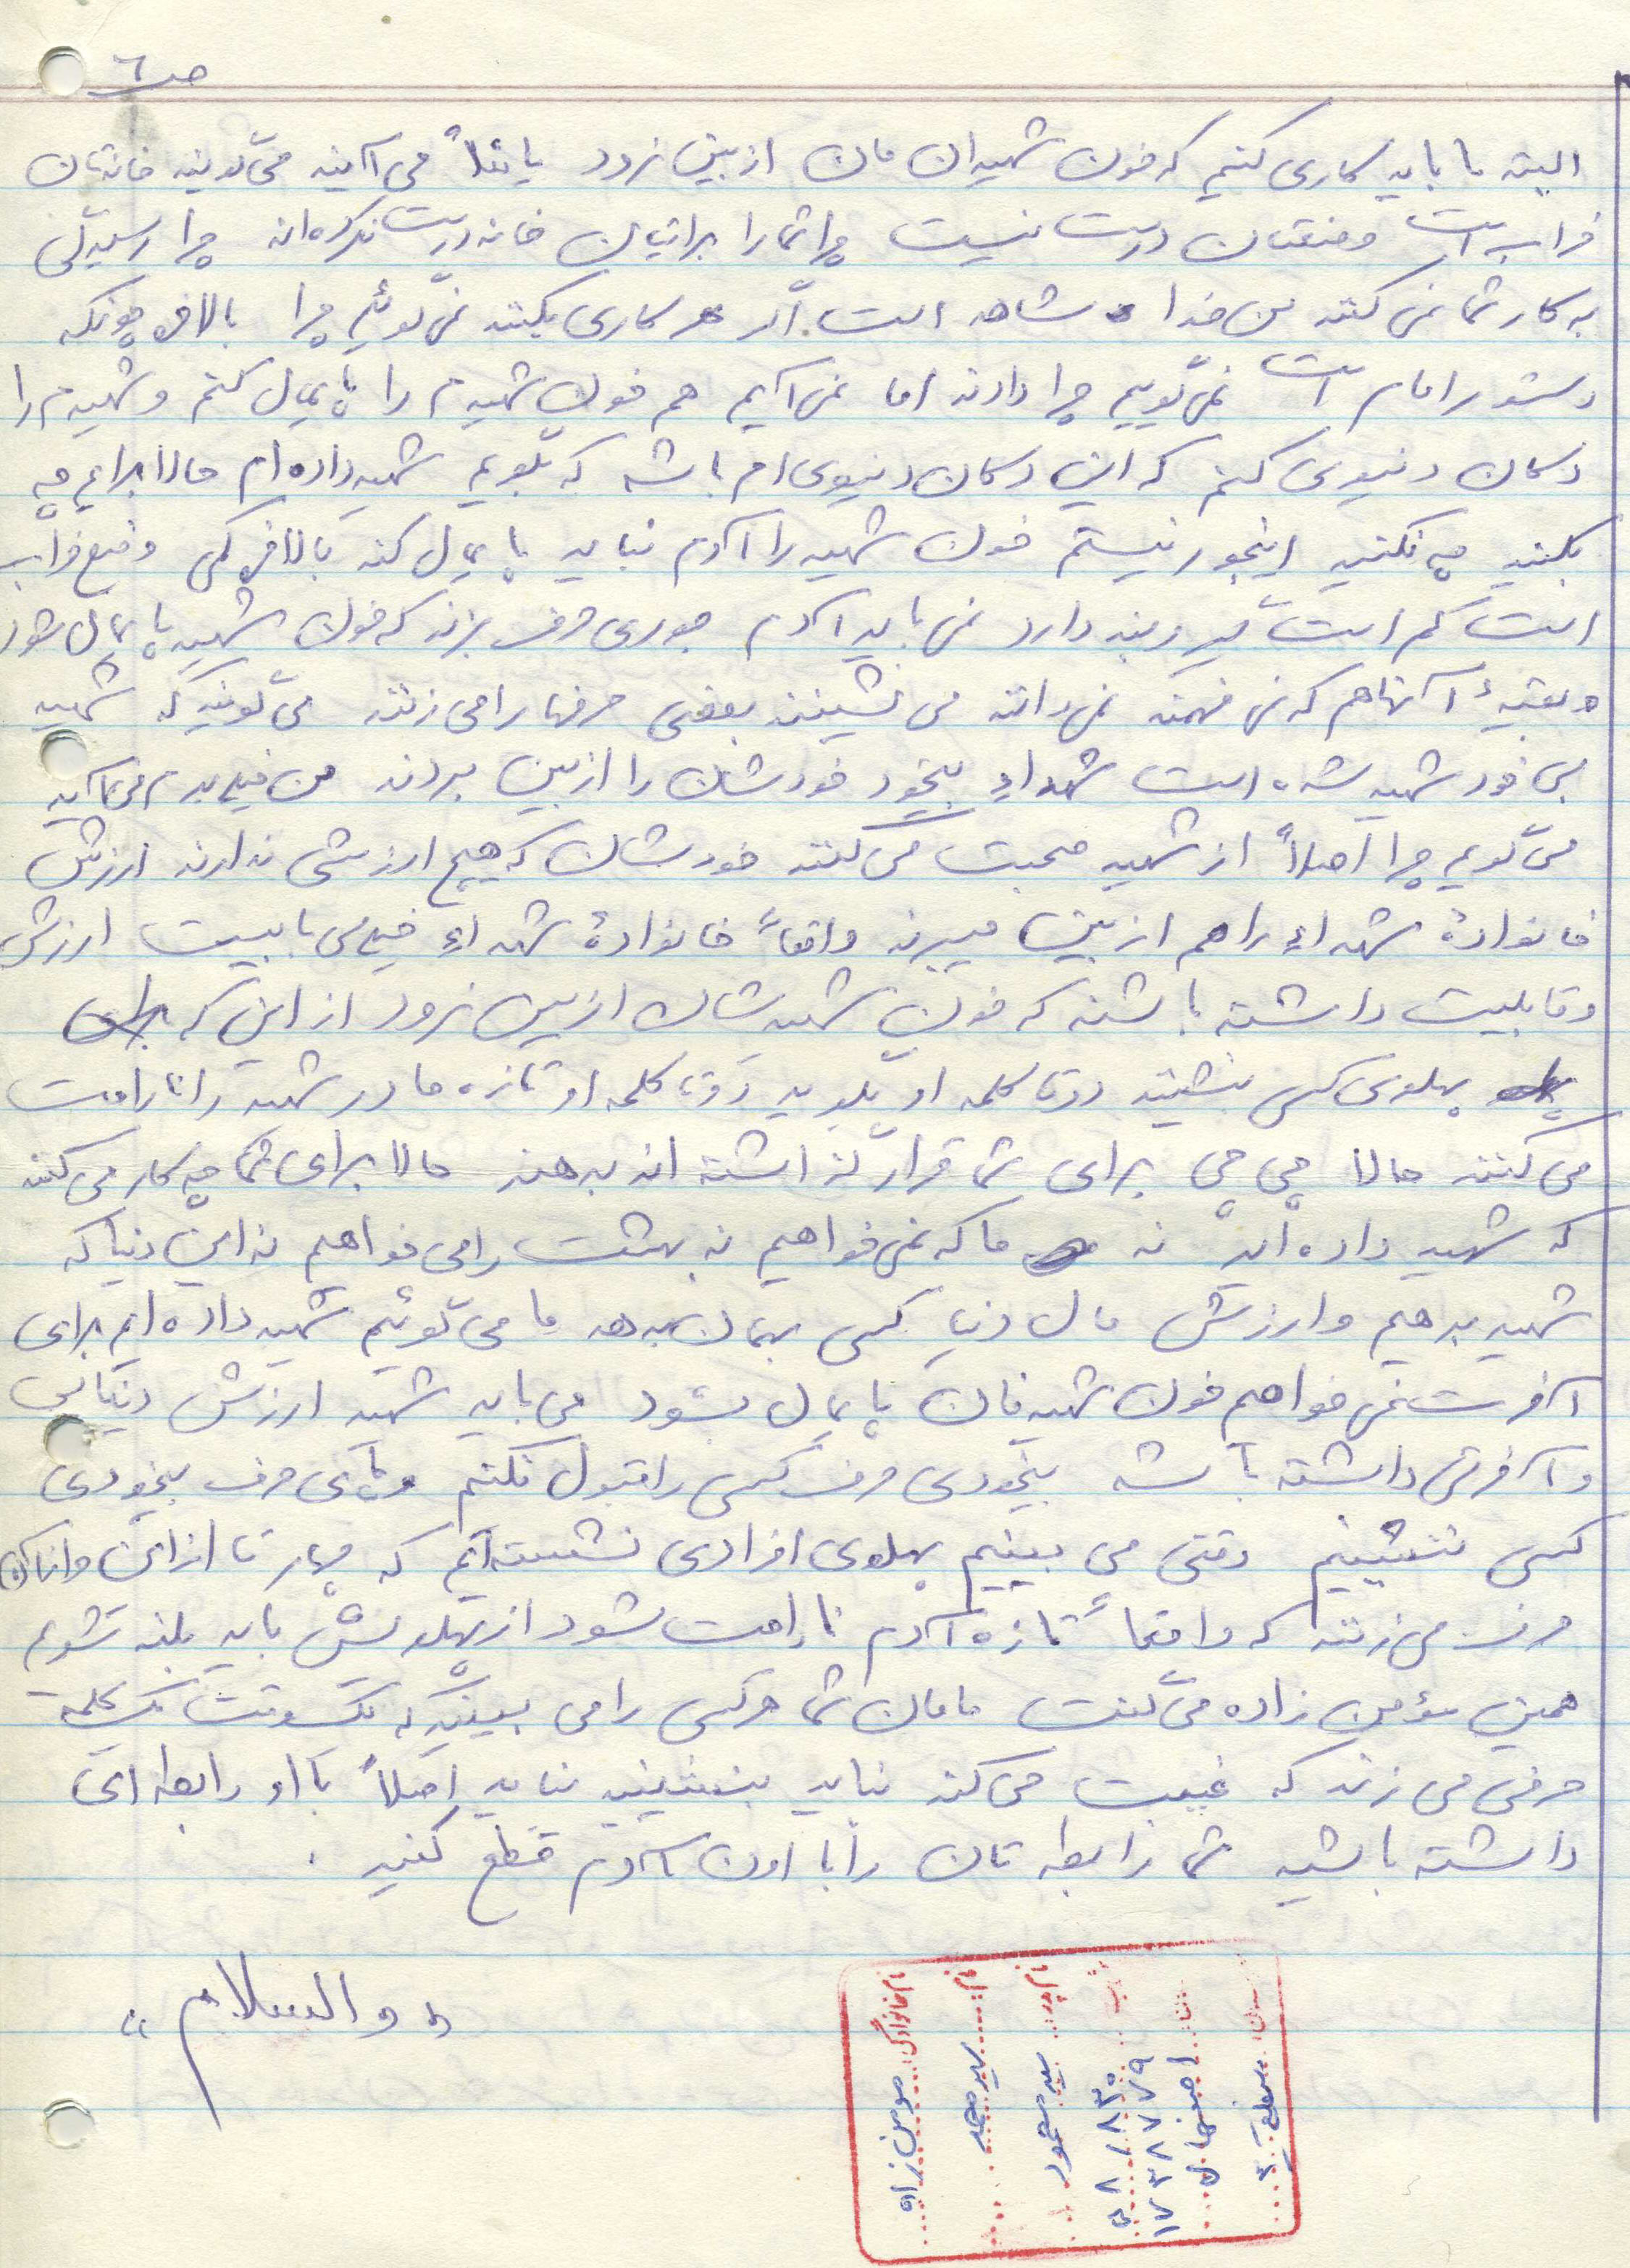 ص ٦
البته ما باید کاری کنیم که خون شهیدان مان از بین نرود یا مثلاً می آیند می گویند خانه تان
خراب است وضعتان درست نیست چرا شما را برایتان خانه درست نکرده اند چرا رسیدگی
به کار شما نمی کنند من خدا شاهد است اگر هر کاری بکنند نمی گوئیم چرا بالاخره چونکه
دستور امام است نمی گوییم چرا دارند اما نمی آیم هم خون شهیدم را پایمال کنم و شهیدم را
دکان دنیوی کنم که این دکان دنیوی ام باشد که بگویم شهید داده ام حالا برایم چه
بکنید چه نکنید اینجور نیستم خون شهید را آدم نباید پایمال کند بالاخره کمی وضع خراب
است کم است گیر و بند دارد نمی باید آدم جوری حرف بزند که خون شهید پایمال شود
و بقیهٔ آنها هم که نمی فهمند نمی دانند می نشینند بعضی حرفها را می زنند می گویند که شهید
بی خود شهید شده است شهداء بیخود خودشان را از بین بردند من خیلی بدم می آید
می گویم چرا اصلاً از شهید صحبت می کنند خودشان که هیچ ارزشی ندارند ارزش
خانوادهٔ شهداء را هم از بین میبرند واقعاً خانوادهٔ شهداء خیلی می بایست ارزش
و قابلیت داشته باشند که خون شهیدشان از بین نرود از این که
پهلوی کسی بنشینند دو تا کلمه او بگوید دو تا کلمه او تازه مادر شهید را ناراحت
می کنند حالا چی چی برای شما قرار گذاشته اند بدهند حالا برای شما چه کار می کنند
که شهید داده اید نه ما که نمی خواهیم نه بهشت را می خواهیم نه این دنیا که
شهید بدهیم و ارزش مال دنیا کسی بهمان بدهد ما می گوئیم شهید داده ایم برای
آخرت نمی خواهیم خون شهیدمان پایمال بشود می باید شهید ارزش دنیائی
و آخرتی داشته باشد بیخودی حرف کسی را قبول نکنیم و پای حرف بیخودی
کسی ننشینیم وقتی می بینیم پهلوی افرادی نشسته ایم که چهار تا از این
حرف می زنند که واقعاً تازه آدم ناراحت بشود از پهلویش باید بلند شویم
همین مؤمن زاده می گفت مامان شما هر کسی را می بینید که یک وقت یک کلمه
حرفی می زند که غیبت می کند نباید بنشینید نباید اصلاً با او رابطه ای
داشته باشید شما رابطه تان را با اون آدم قطع کنید .
« والسلام »
نام خانوادگی: مومن زاده
نام: سید محمد
نام پدر: سید محمود
۱۷۳۸۷۷۹
اصفهان